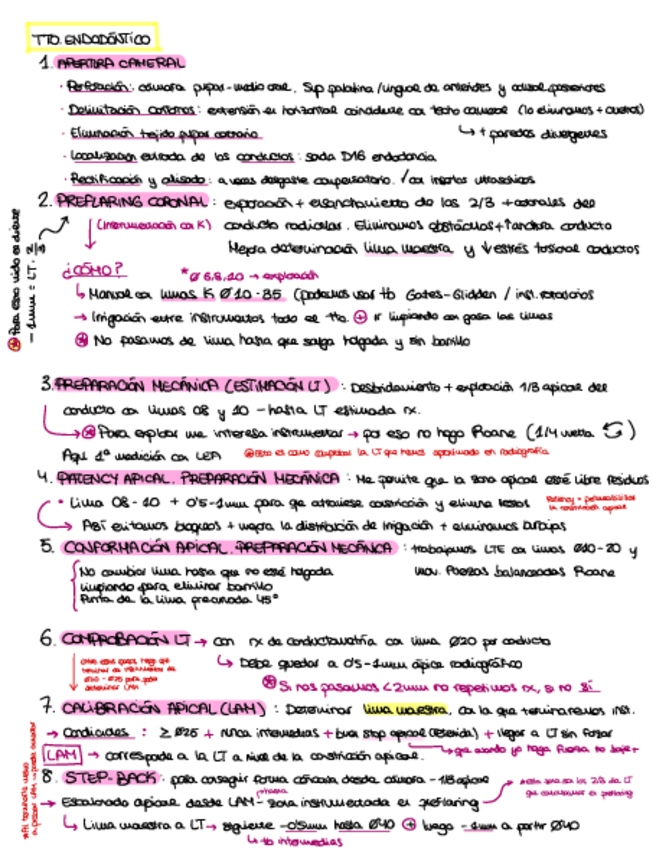 TTO. ENDODÓNTICO
1. APERTURA CAMERAL
· Perforación: cámara pulpar - medio oral. Sup palatina/lingual de anteriores y oclusal posteriores
· Delimitación contornos: extensión en horizontal coincidente con techo cameral (lo eliminamos + cuernos)
↳ + paredes divergentes
· Eliminación tejido pulpar coronario
· Localización entrada de los conductos: sonda D16 endodoncia
· Rectificación y alisado: a veces desgaste compensatorio. / con insertos ultrasónicos
2. PREFLARING CORONAL: exploración + ensanchamiento de los 2/3 + coronales del
(Instrumentación con K) conducto radicular. Eliminamos obstáculos + ↑ anchura conducto
Mejora determinación lima maestra y ↓ estrés torsional conductos
¿CÓMO? * Ø 6,8,10 → exploración
↳ Manual con limas K Ø 10-35 (podemos usar tb Gates-Glidden / inst. rotatorios
→ Irrigación entre instrumentos todo el tto. ⊕ ir limpiando con gasa las limas
⊛ No pasamos de lima hasta que salga holgada y sin barrillo
3. PREPARACIÓN MECÁNICA (ESTIMACIÓN LT): Desbridamiento + exploración 1/3 apical del
conducto con limas 08 y 10 - hasta LT estimada rx.
→ ⊛ Para explorar me interesa instrumentar → por eso no hago Roane (1/4 vuelta ↺)
Aquí 1º medición con LEA ⊛ Esto es como comprobar la LT que hemos aproximado en radiografía
4. PATENCY APICAL. PREPARACIÓN MECÁNICA: Me permite que la zona apical esté libre residuos
• Lima 08-10 + 0'5-1mm para que atraviese constricción y elimine restos
Patency = permeabilizar la constricción apical
→ Así evitamos bloqueos + mejora la distribución de irrigación + eliminamos burbujas
5. CONFORMACIÓN APICAL. PREPARACIÓN MECÁNICA: trabajamos LTE con limas Ø10-20 y
No cambiar lima hasta que no esté holgada mov. Fuerzas balanceadas Roane
Limpiando para eliminar barrillo
Punta de la lima precurvada 45°
6. COMPROBACIÓN LT → con rx de conductometría con lima Ø20 por conducto
↳ Debe quedar a 0'5-1mm ápice radiográfico
⊛ Si nos pasamos <2mm no repetimos rx, si no SÍ
7. CALIBRACIÓN APICAL (LAM): Determinar lima maestra, con la que terminaremos inst.
→ Condiciones: ≥ Ø25 + nunca intermedias + buen stop apical (retenida) + llegar a LT sin forzar
→ que cuando yo haga fuerza no baje +
LAM → corresponde a la LT a nivel de la constricción apical.
8. STEP-BACK: para conseguir forma cónica desde cámara - 1/3 apical
→ Escalonado apical desde LAM - zona instrumentada en preflaring
hasta
↳ Lima maestra a LT → siguiente -0'5mm hasta Ø40 ⊕ luego -1mm a partir Ø40
↳ tb intermedias